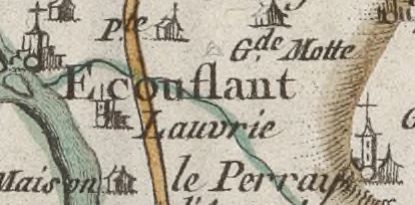 Pte
Gde Motte
Ecouflant
Lauvrie
Maison
le Perray